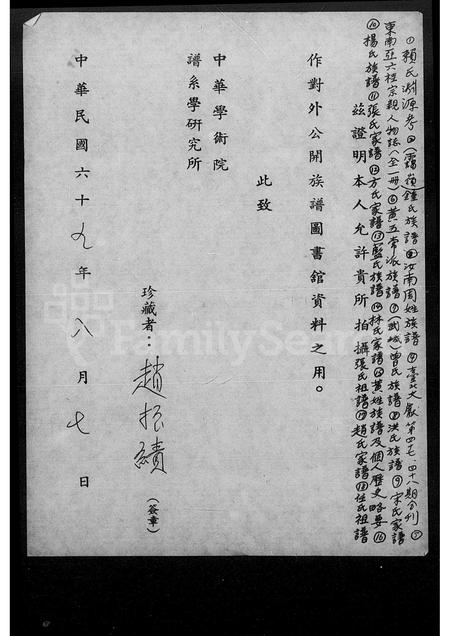 ①賴氏淵源考②(霞嶺)鍾氏族譜③汝南周姓族譜④臺北文獻第四七、四十八期合刊⑤
東南亞六桂宗親人物誌(全一冊)⑥黃五常派族譜⑦武城曾氏族譜⑧洪氏族譜⑨宋氏家譜
⑩楊氏族譜⑪張氏家譜⑫方氏家譜⑬藍氏族譜⑭林氏家譜⑮黃姓族譜及個人歷史略要⑯
茲證明本人允許貴所拍攝張氏祖譜⑰趙氏家譜⑱任氏祖譜
作對外公開族譜圖書舘資料之用。
此致
中華學術院
譜系學研究所
珍藏者：趙振績(簽章)
中華民國六十九年八月七日
FamilySearch